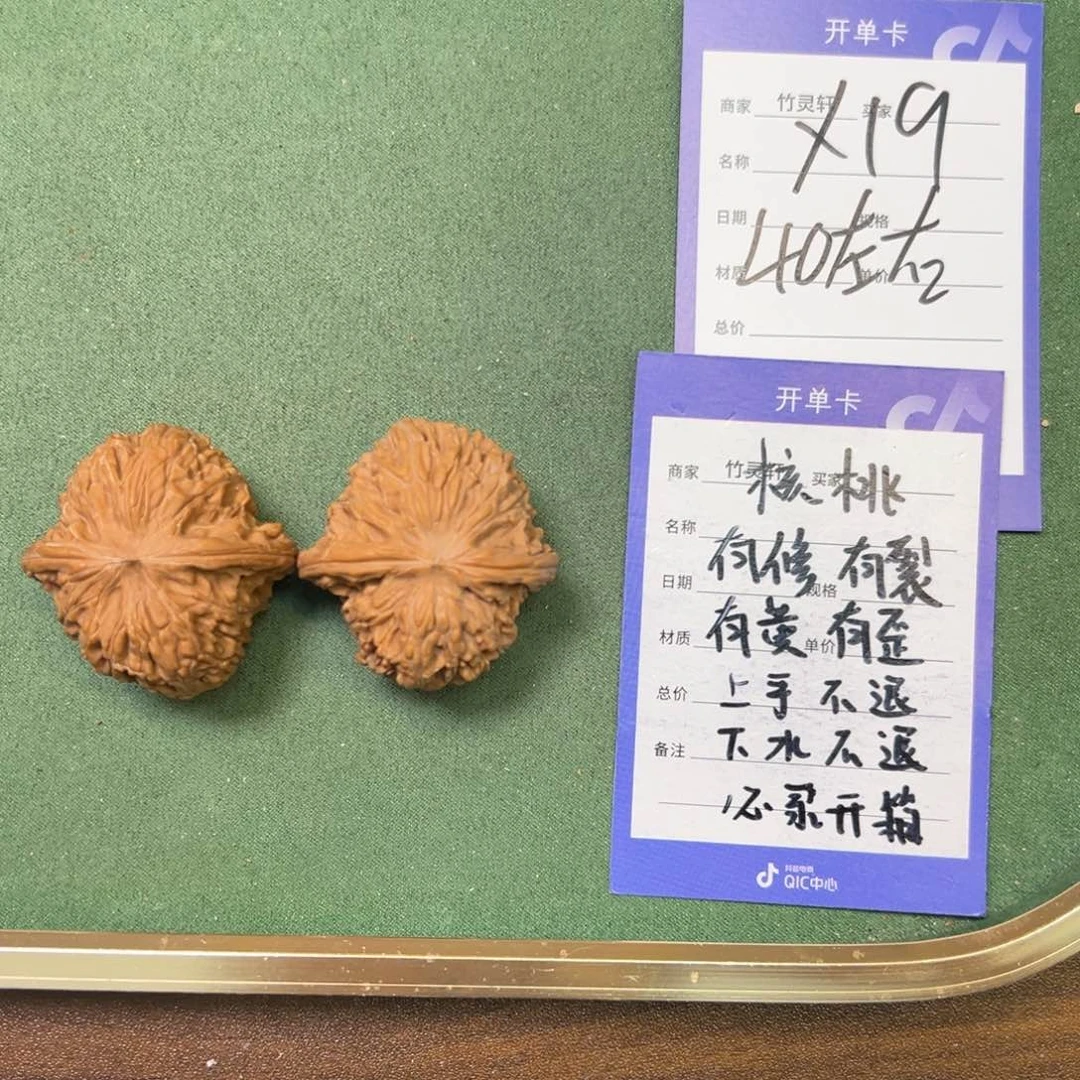 开单卡
商家 竹灵轩 买家
X19
名称
日期 规格
40左右2
材质 单价
总价
开单卡
商家 竹灵轩 买家
核桃
名称
有修 有裂
日期 规格
有黄 有歪
材质 单价
总价 上手不退
备注 下水不退
必录开箱
抖音电商
QIC中心